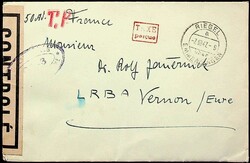 50Al. T.P. France
TAXE
perçue
RIEGEL
a
Monsieur
Dr. Rolf Jauernick
LRBA Vernon/Eure
CONTROLE